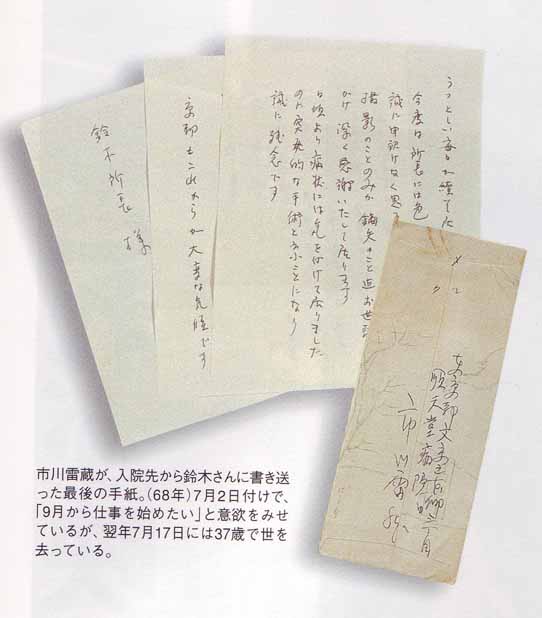 うつとしい毎日が
今度は所長には色
誠に申訳けなく思
撮影のことのみか こと迄お世話
かけ 深く感謝いたして居ります
日頃より病状には気を付けて居りました
のに突発的な手術と云ふことになり
誠に残念です
京都もこれからが大変な気候です
鈴木所長 様
東京都文京区本郷
順天堂病院
市川雷蔵
市川雷蔵が、入院先から鈴木さんに書き送
った最後の手紙。(68年)7月2日付けで、
「9月から仕事を始めたい」と意欲をみせ
ているが、翌年7月17日には37歳で世を
去っている。